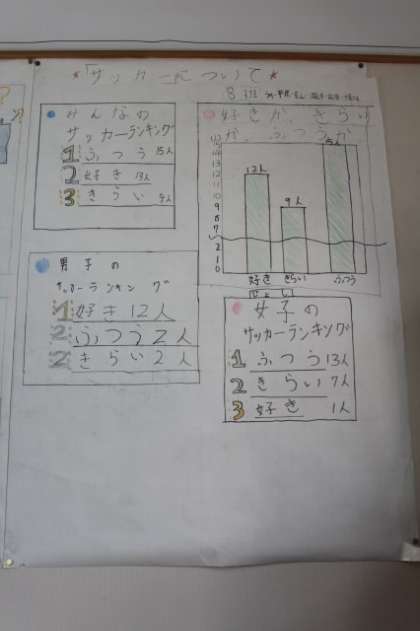 ★「サッカーについて」★
みんなの
サッカーランキング
1 ふつう 15人
2 好き 13人
3 きらい 9人
好きか、きらい
か、ふつうか
12人
9人
15人
好き きらい ふつう
男子の
サッカーランキング
1 好き12人
2 ふつう2人
2 きらい2人
女子の
サッカーランキング
1 ふつう13人
2 きらい7人
3 好き 1人